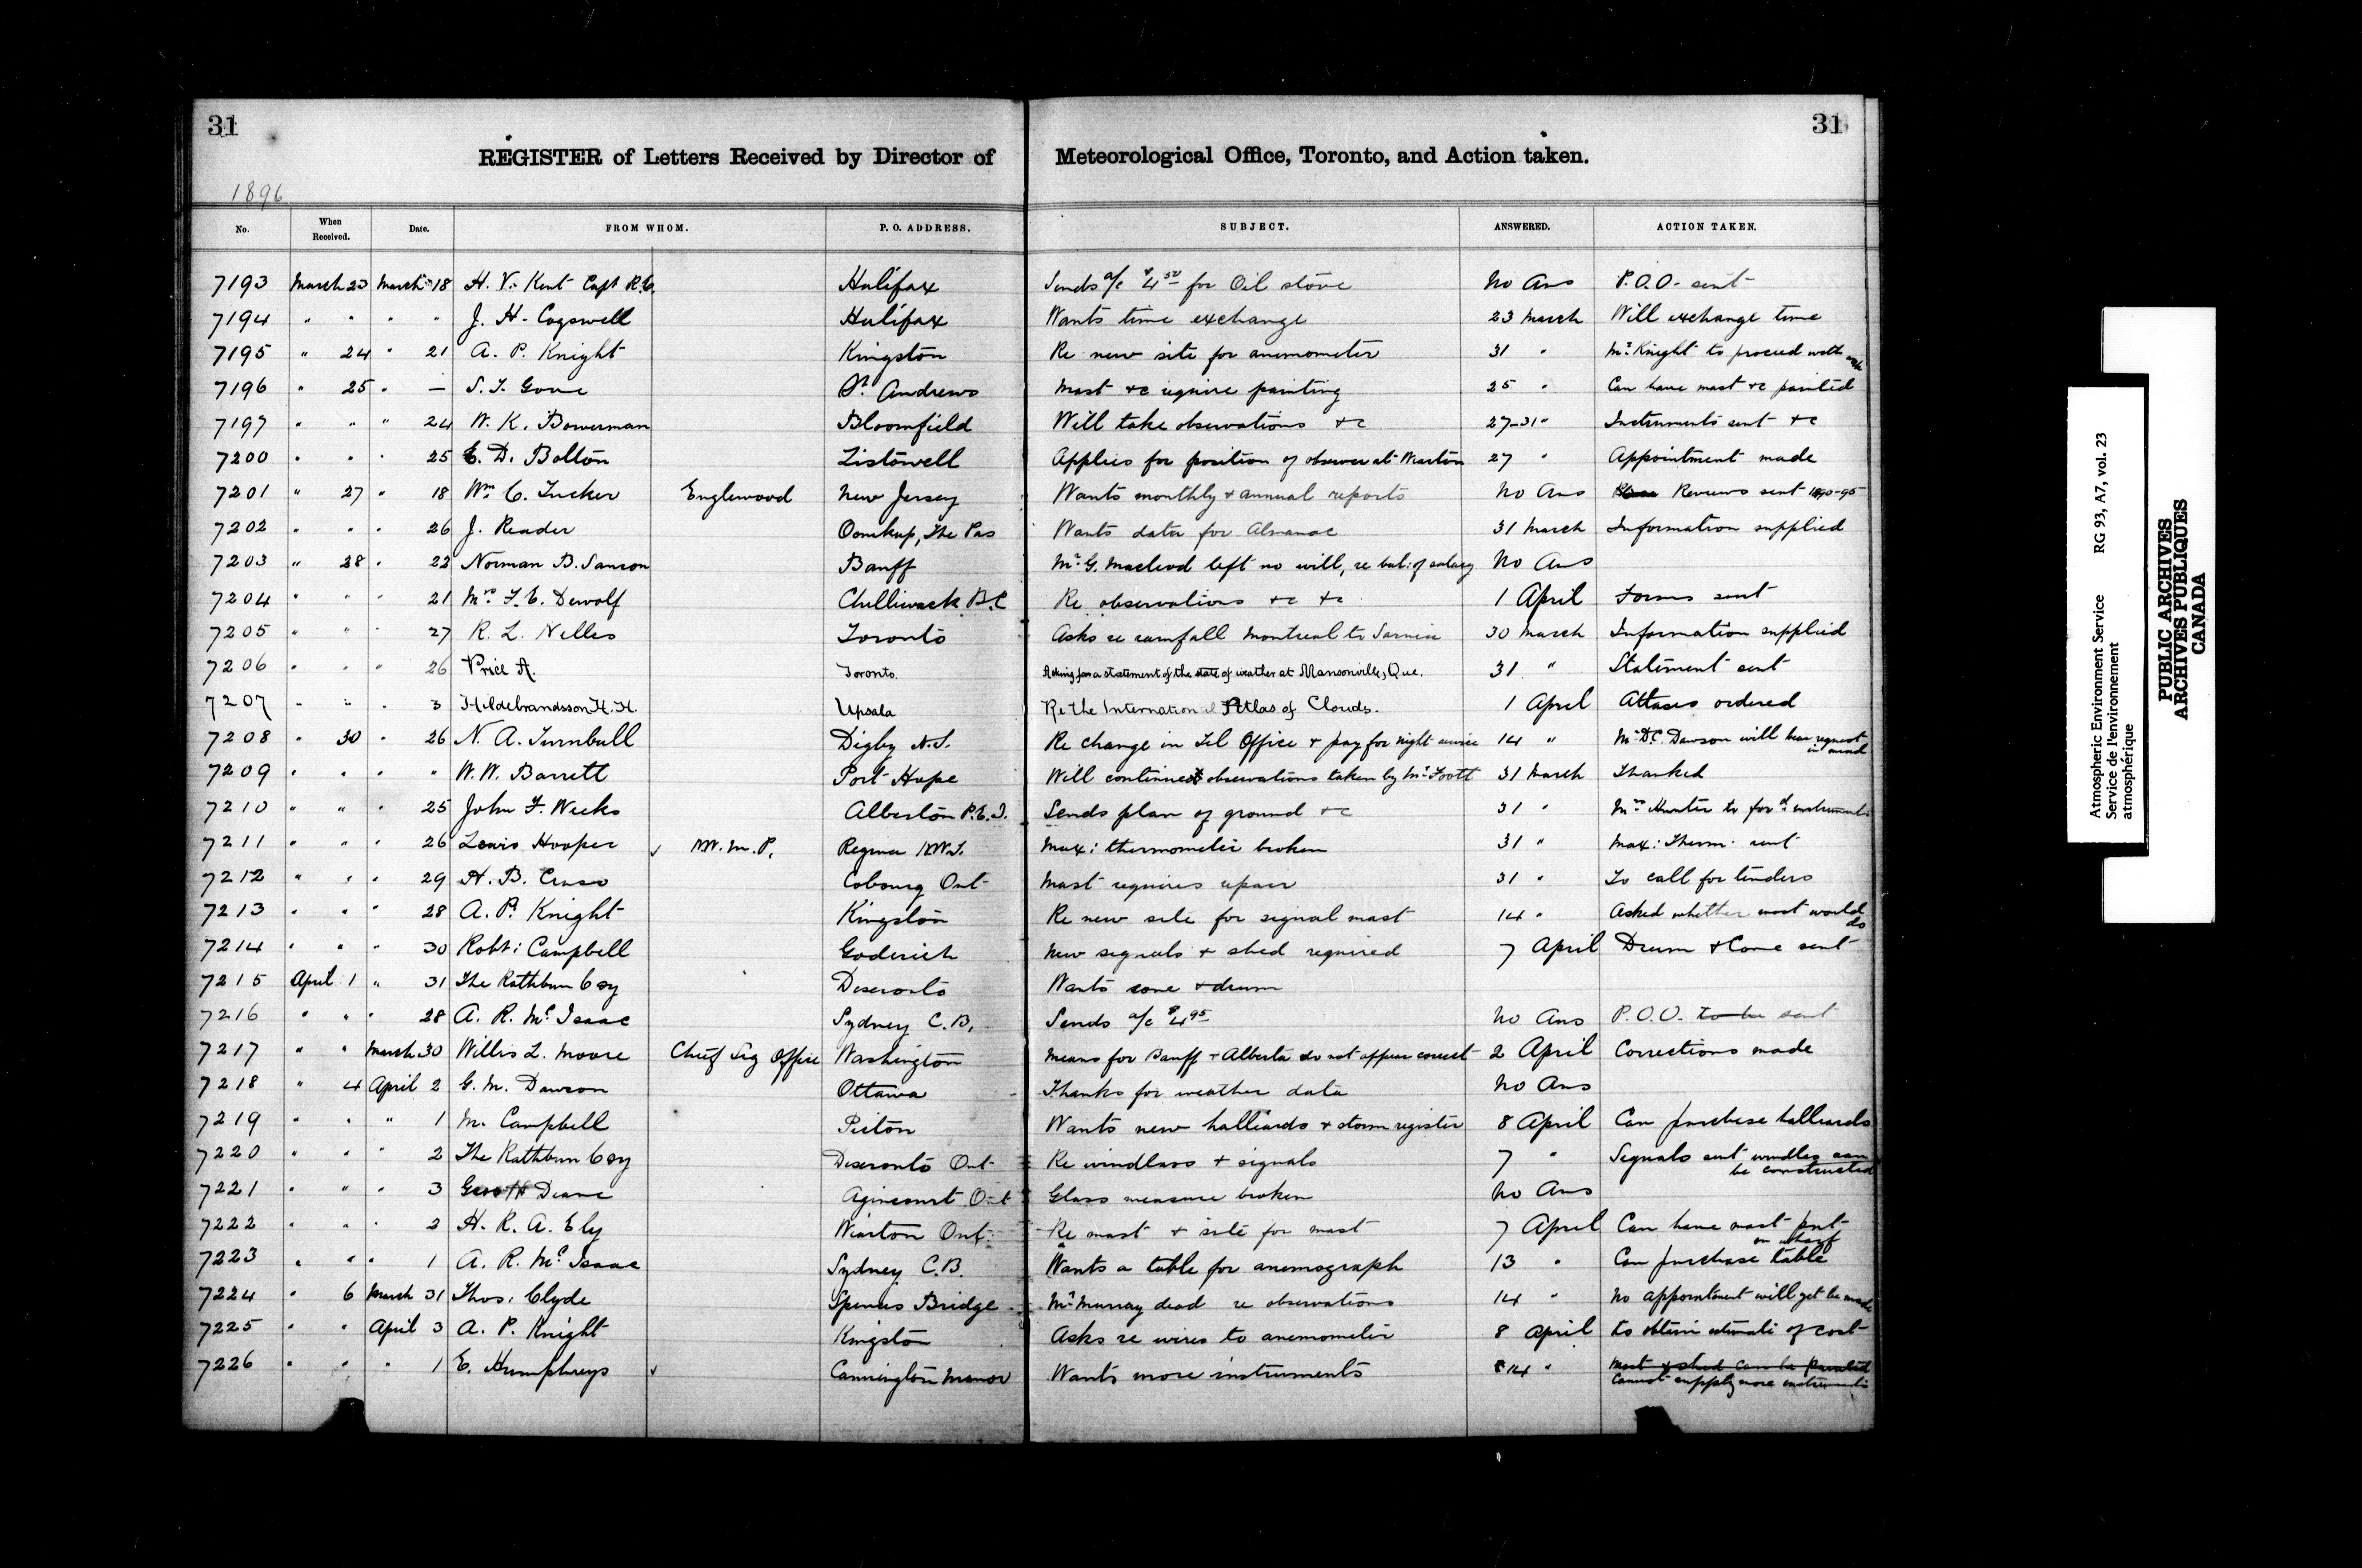 31
31
REGISTER of Letters Received by Director of Meteorological Office, Toronto, and Action taken.
1896
No. When Received. Date. FROM WHOM. P. O. ADDRESS. SUBJECT. ANSWERED. ACTION TAKEN.
7193 March 23 March 18 H. V. Kent Capt R.E. Halifax Sends a/c $4 50 for Oil stove No Ans P.O.O. sent
7194 " " " " J. H. Cogswell Halifax Wants time exchange 23 March Will exchange time
7195 " 24 " 21 A. P. Knight Kingston Re new site for anemometer 31 " Mr Knight to proceed with work
7196 " 25 " — S. T. Gove St Andrews Mast &c require painting 25 " Can have mast &c painted
7197 " " " 24 W. K. Bowerman Bloomfield Will take observations &c 27-31 " Instruments sent &c
7200 " " " 25 E. D. Bolton Listowell Applies for position of observer at Wiarton 27 " Appointment made
7201 " 27 " 18 Wm C. Tucker Englewood New Jersey Wants monthly & annual reports No Ans Reviews sent 1890-95
7202 " " " 26 J. Reader Oomkup, The Pas Wants data for Almanac 31 March Information supplied
7203 " 28 " 22 Norman B. Sanson Banff Mr G. Macleod left no will, re bal: of salary No Ans
7204 " " " 21 Mrs F. E. Dewolf Chilliwack B.C Re observations &c &c 1 April Forms sent
7205 " " " 27 R. L. Nelles Toronto Asks re rainfall Montreal to Sarnia 30 March Information supplied
7206 " " " 26 Price A. Toronto. Asking for a statement of the state of weather at Mansonville, Que. 31 " Statement sent
7207 " " " 3 Hildebrandsson H. H. Upsala Re the International Atlas of Clouds. 1 April Atlases ordered
7208 " 30 " 26 N. A. Turnbull Digby N.S. Re change in Tel Office & pay for night service 14 " Mr D.C. Dawson will bear request in mind
7209 " " " " W. W. Barrett Port Hope Will continue observations taken by Mr Foott 31 March Thanked
7210 " " " 25 John F. Weeks Alberton P.E.I. Sends plan of ground &c 31 " Mr Hunter to ford instruments
7211 " " " 26 Lewis Hooper N.W.M.P. Regina N.W.T. Max: thermometer broken 31 " Max: Therm: sent
7212 " " " 29 H. B. Cruso Cobourg Ont Mast requires repair 31 " To call for tenders
7213 " " " 28 A. P. Knight Kingston Re new site for signal mast 14 " Asked whether mast would do
7214 " " " 30 Robt: Campbell Goderich New signals & shed required 7 April Drum & Cone sent
7215 April 1 " 31 The Rathbun Coy Deseronto Wants cone & drum
7216 " " " 28 A. R. McIsaac Sydney C.B. Sends a/c $4 95 No Ans P.O.O. to be sent
7217 " " March 30 Willis L. Moore Chief Sig Office Washington Means for Banff & Alberta do not appear correct 2 April Corrections made
7218 " 4 April 2 G. M. Dawson Ottawa Thanks for weather data No Ans
7219 " " " 1 M. Campbell Picton Wants new halliards & storm register 8 April Can purchase halliards
7220 " " " 2 The Rathbun Coy Deseronto Ont Re windlass & signals 7 " Signals sent windlass can be constructed
7221 " " " 3 Deane Agincourt Ont Glass measure broken No Ans
7222 " " " 2 H. R. A. Ely Wiarton Ont. Re mast & site for mast 7 April Can have mast put on wharf
7223 " " " 1 A. R. McIsaac Sydney C.B. Wants a table for anemograph 13 " Can purchase table
7224 " 6 March 31 Thos: Clyde Spences Bridge Mr Murray dead re observations 14 " No appointment will yet be made
7225 " " April 3 A. P. Knight Kingston Asks re wires to anemometer 8 April To obtain estimate of cost
7226 " " " 1 E. Humphreys Cannington Manor Wants more instruments 14 " Mast & shed can be painted
Cannot supply more instruments
Atmospheric Environment Service
Service de l'environnement
atmosphérique
RG 93, A7, vol. 23
PUBLIC ARCHIVES
ARCHIVES PUBLIQUES
CANADA